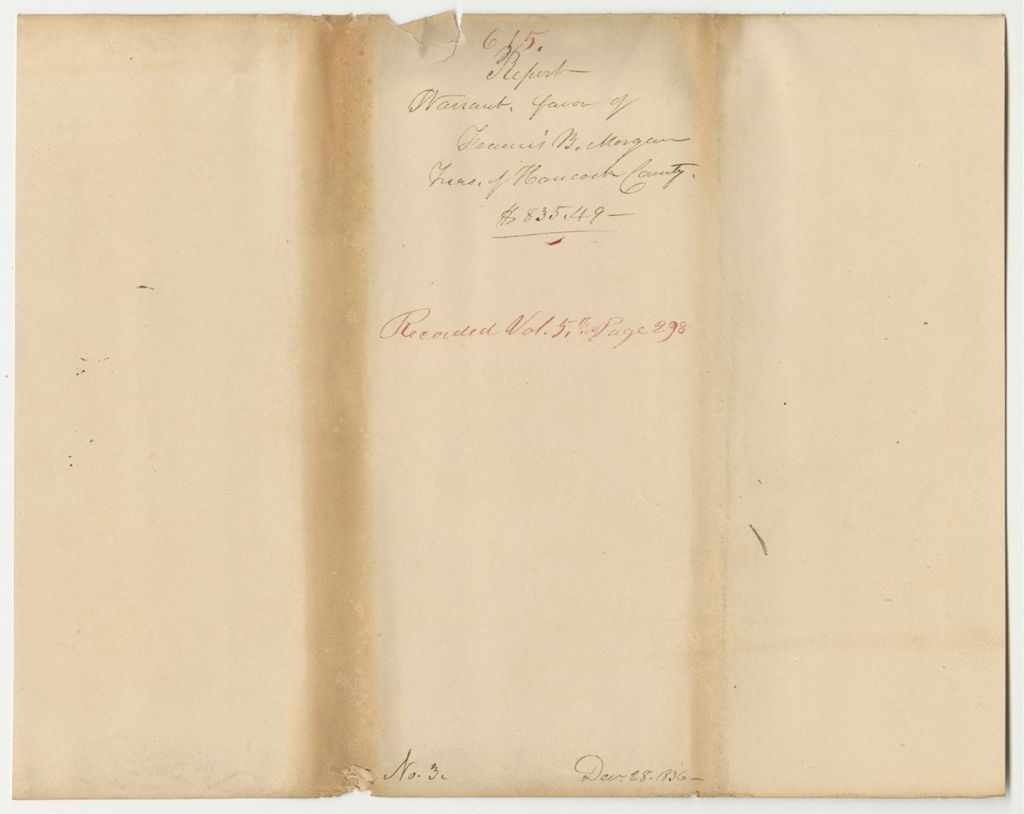 615.
Report
Warrant. favor of
Francis B. Morgan
Treas. of Hancock County.
$835.49—
Recorded Vol. 5, Page 298
No. 3.
Dec 28. 1836—